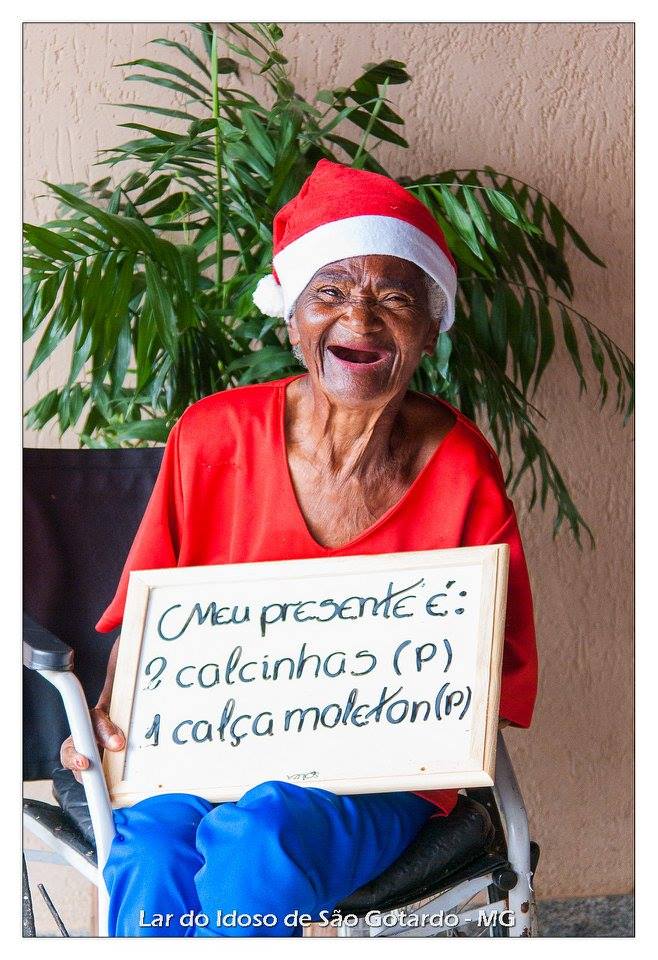 Meu presente é:
2 calcinhas (P)
1 calça moleton (P)
Lar do Idoso de São Gotardo - MG